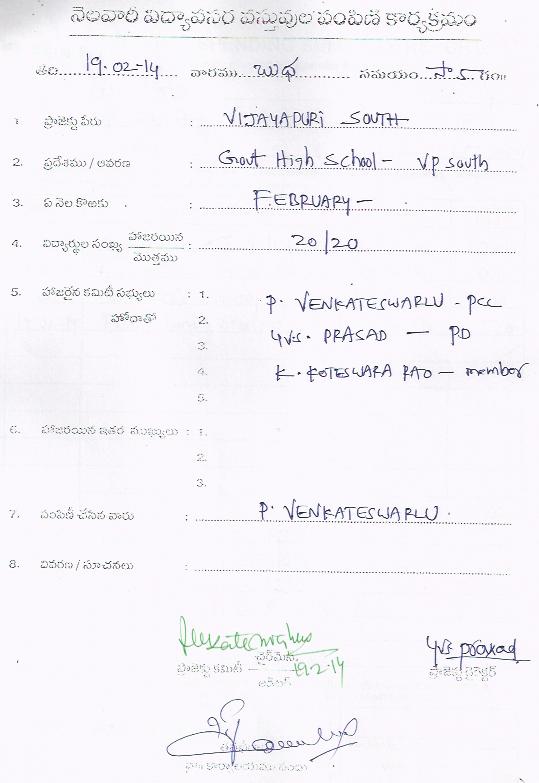 నెలవారీ విద్యావసర వస్తువుల పంపిణి కార్యక్రమం
తేది 19.02-14 వారము బుధ సమయం సా
1. ప్రాజెక్టు పేరు : VIJAYAPURI SOUTH
2. ప్రదేశము / ఆవరణ : Govt High School - VP South
3. ఏ నెల కొఱకు : FEBRUARY -
4. విద్యార్థుల సంఖ్య హాజరయిన / మొత్తము : 20/20
5. హాజరైన కమిటీ సభ్యులు : 1. P. VENKATESWARLU - PCC
హోదాతో 2. YVS. PRASAD - PD
3.
4. K. KOTESWARA RAO - member
5.
6. హాజరయిన ఇతర ముఖ్యులు : 1.
2.
3.
7. పంపిణీ చేసిన వారు : P. VENKATESWARLU.
8. వివరణ / సూచనలు :
ప్రాజెక్టు కమిటీ ఛైర్మెన్ 19.2.14
YVS prasad
ప్రాజెక్టు డైరెక్టర్